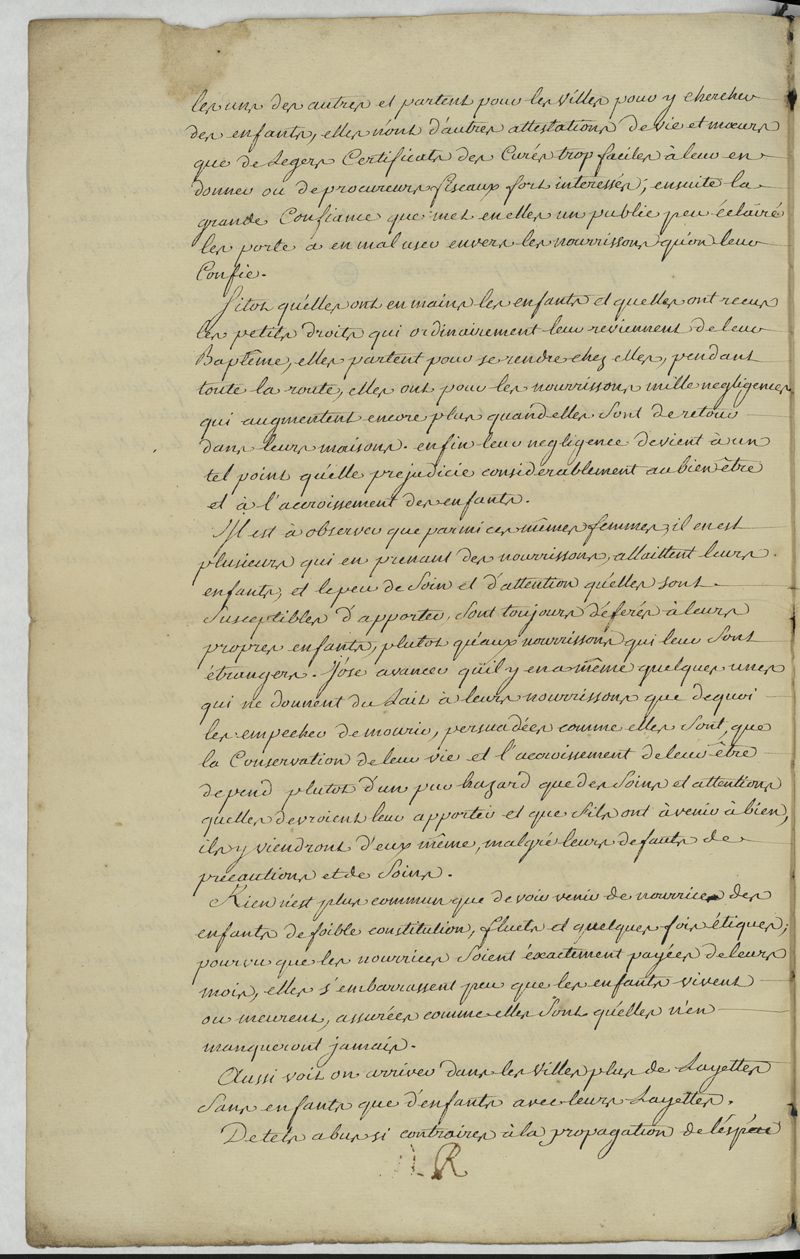 les uns des autres et partent pour les villes pour y chercher
des enfants, elles n'ont d'autres attestations de vie et mœurs
que de Legers Certificats des Curés trop faciles à leur en
donner ou de procureurs fiscaux fort interessés; ensuite la
grande Confiance que met en elles un public peu éclairé
les porte à en mal user envers les nourrissons qu'on leur
Confie.
Sitot qu'elles ont en mains les enfants et quelles ont recus
les petits droits qui ordinairement leur reviennent de leur
Baptême, elles partent pour se rendre chez elles, pendant
toute la route, elles ont pour les nourrissons mille negligences
qui augmentent encore plus quand elles Sont de retour
dans leurs maisons. enfin leur negligence devient à un
tel point qu'elle prejudicie considerablement au bien être
et à l'accroissement des enfants.
Il est à observer que parmi ces mêmes femmes, il en est
plusieurs qui en prenant des nourrissons, allaittent leurs
enfants, et le peu de Soin et d'attention qu'elles sont
Susceptibles d'apporter, Sont toujours déferés à leurs
propres enfants, plutot qu'aux nourrissons qui leur Sont
étrangers. J'ose avancer qu'il y en a même quelques unes
qui ne donnent du Lait à leurs nourrissons que de quoi
les empecher de mourir, persuadées comme elles Sont, que
la Conservation de leur vie et l'accroissement de leur être
depend plutot d'un pur hazard que des Soins et attentions
quelles devroient leur apporter et que S'ils ont à venir à bien,
ils y viendront d'eux même, malgré leurs defauts de
précautions et de Soins.
Rien n'est plus commun que de voir venir de nourrices des
enfants de foible constitution, fluets et quelques fois étiques;
pourvu que les nourrices Soient éxactement payées de leurs
mois, elles s'embarrassent peu que les enfants vivent
ou meurent, assurées comme elles Sont qu'elles n'en
manqueront jamais.
Aussi voit on arriver dans les Villes plus de Layettes
Sans enfants que d'enfants avec leurs Layettes.
De tels abus si contraires à la propagation de l'éspéce
R